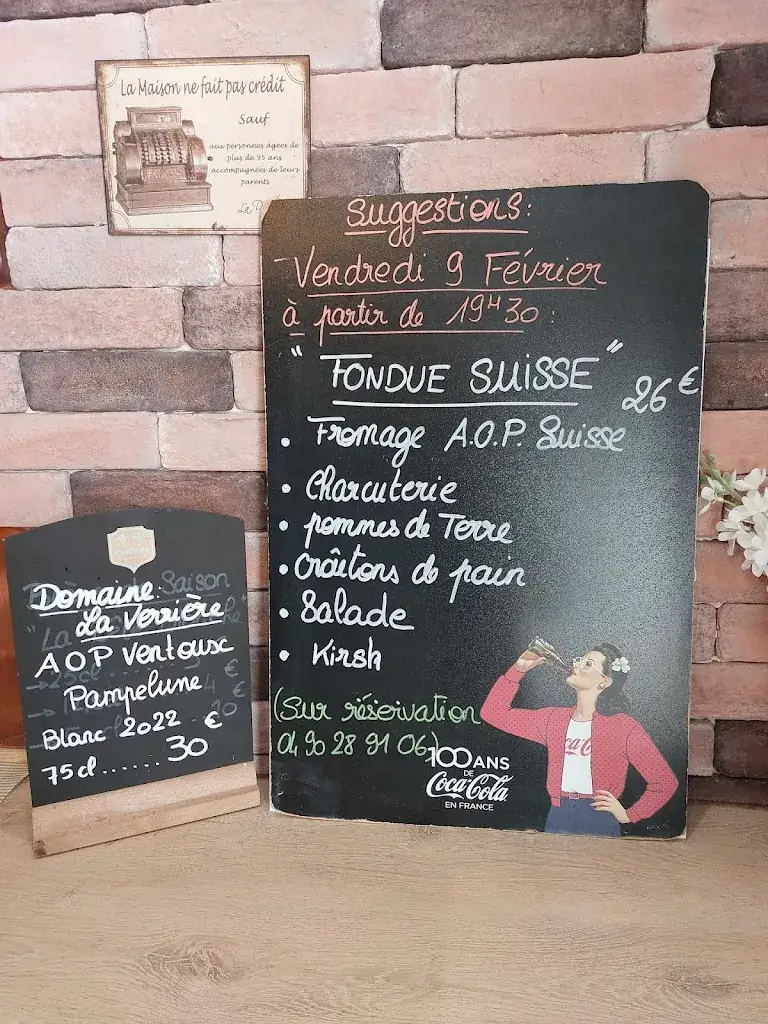 La Maison ne fait pas crédit
Sauf
aux personnes agées de
plus de 95 ans
accompagnées de leurs
parents
Suggestions:
Vendredi 9 Février
à partir de 19H30:
"FONDUE SUISSE" 26€
• Fromage A.O.P. Suisse
• Charcuterie
• pommes de Terre
• Croûtons de pain
• Salade
• Kirsh
(Sur réservation
04 90 28 91 06)
100 ANS
DE
Coca-Cola
EN FRANCE
CHIMAY
Saison
Domaine
La Verrière
AOP Ventoux
Pampelune
Blanc 2022
75cl......30€